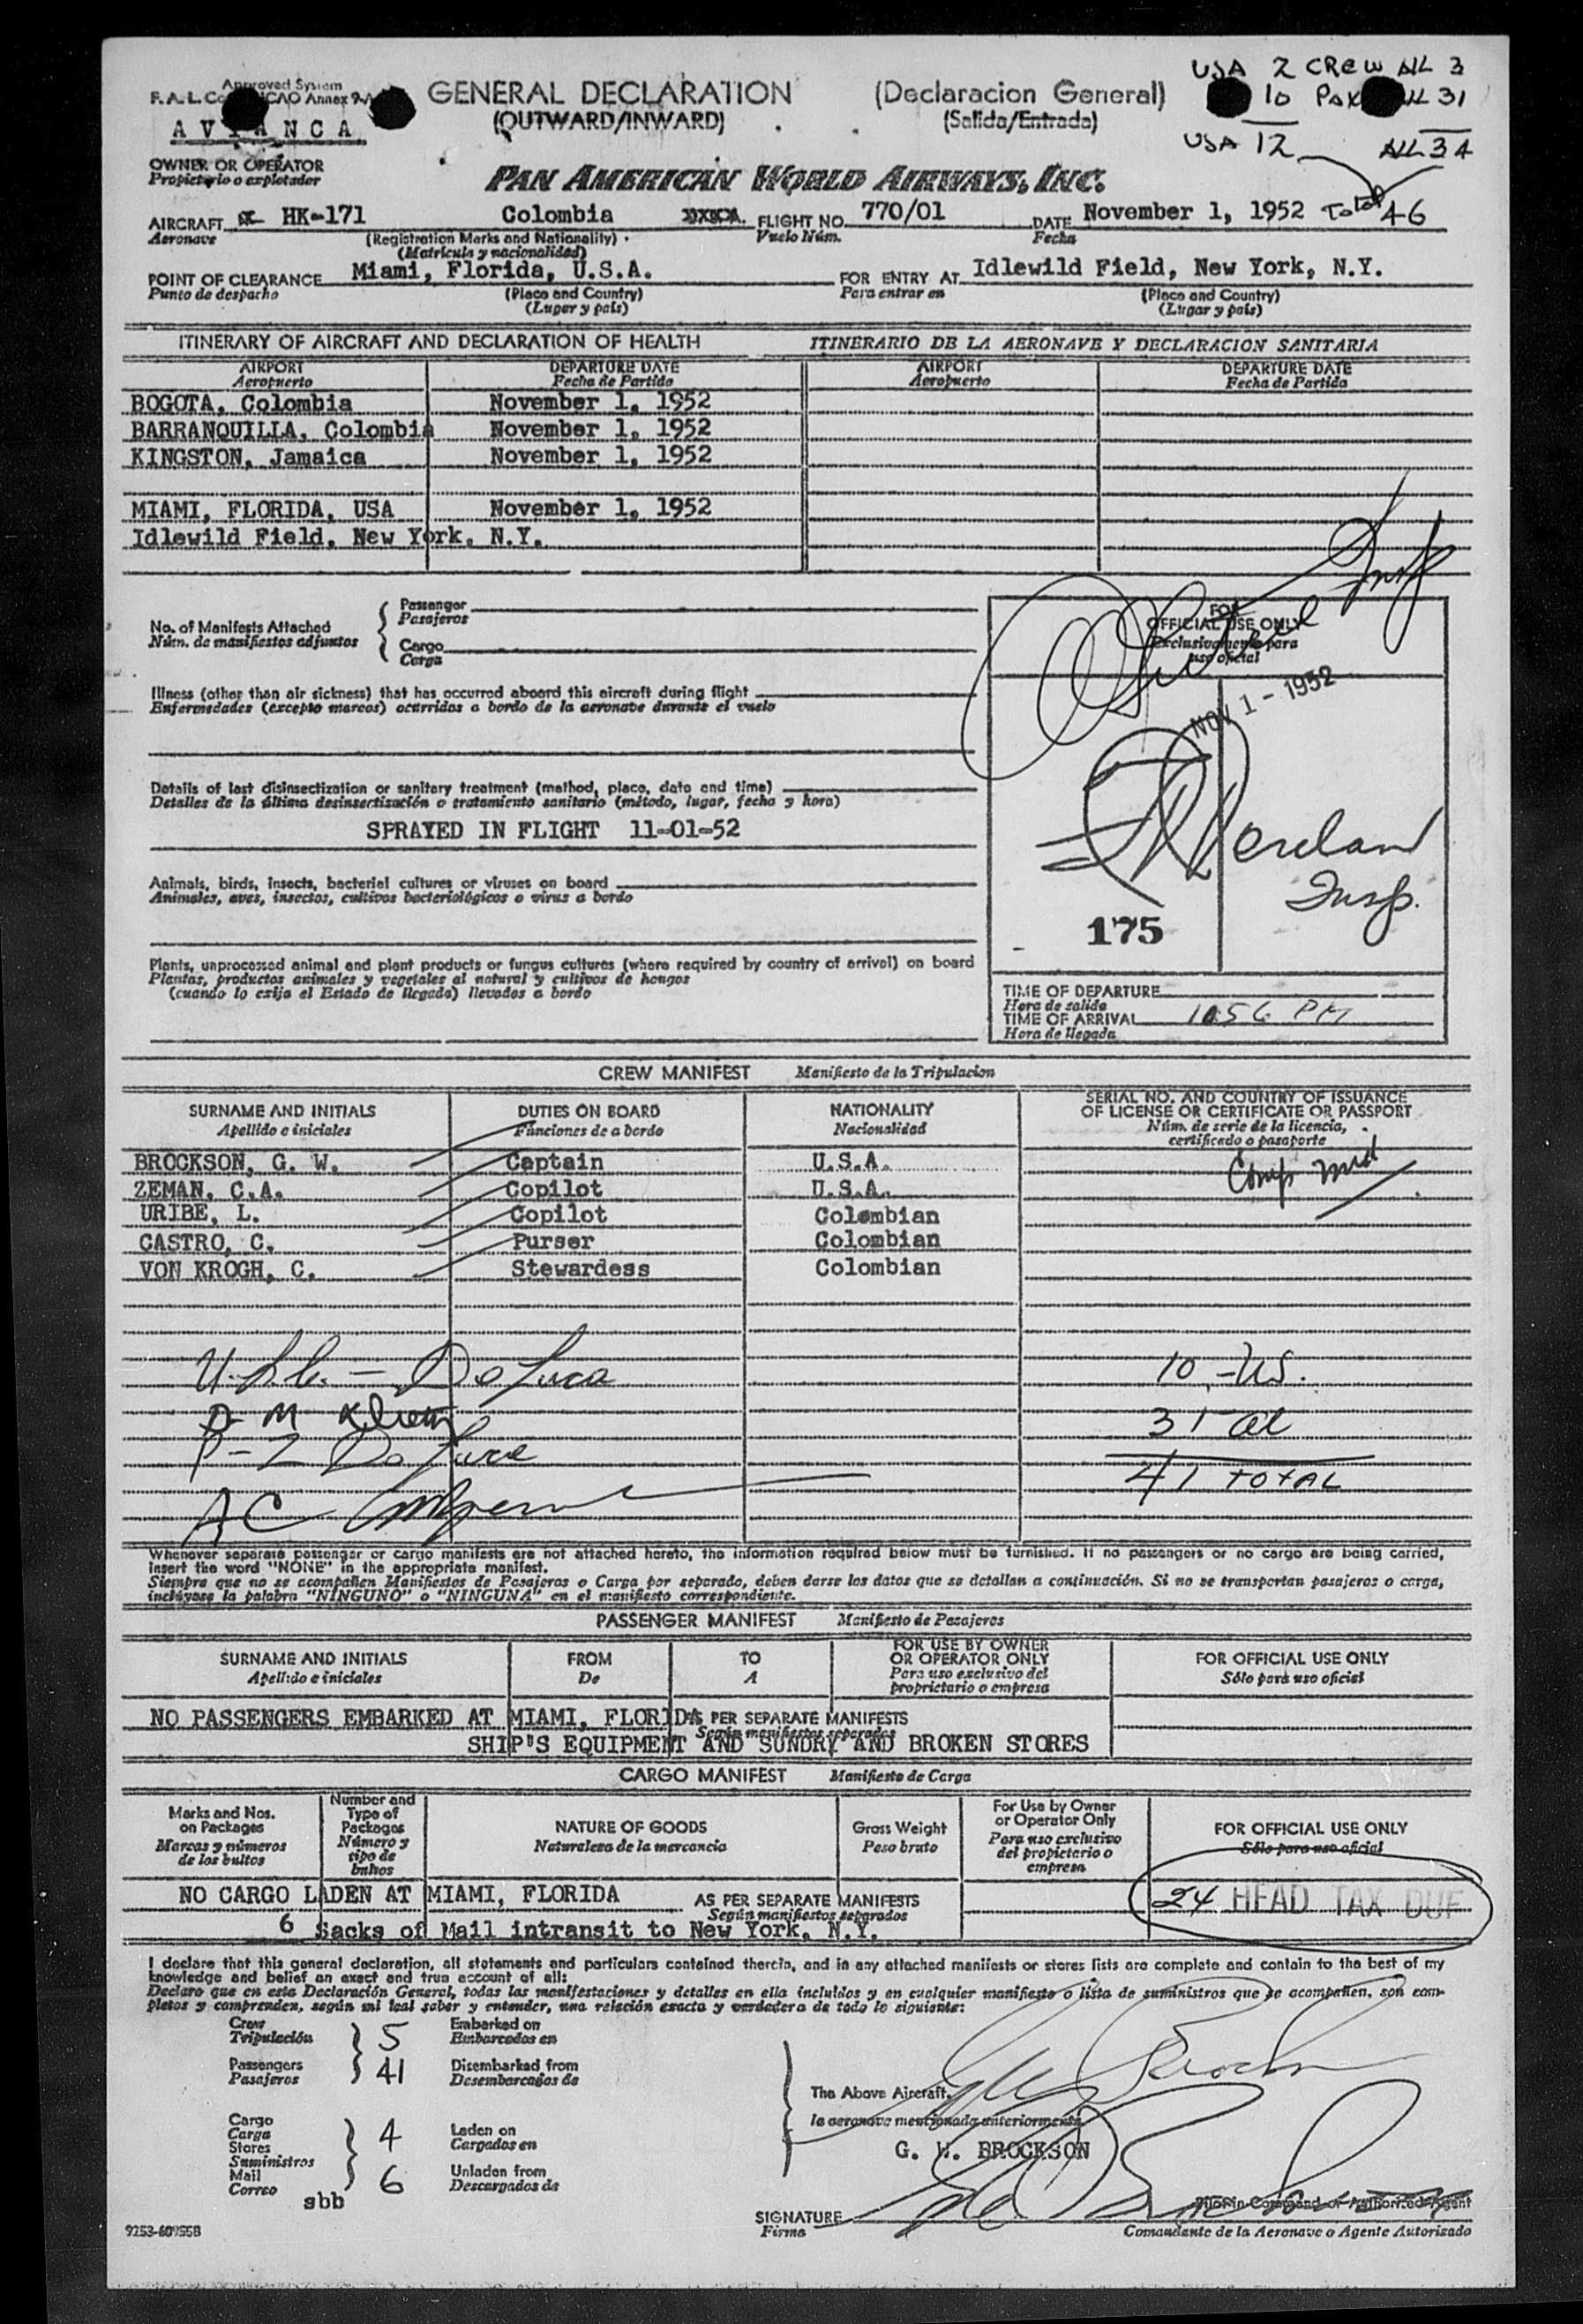 Approved System
F.A.L. ICAO Annex 9
GENERAL DECLARATION (Declaracion General)
(OUTWARD/INWARD) (Salida/Entrada)
USA 2 CREW ALL 3
10 PAX ALL 31
USA 12 ALL 34
Total 46
AVIANCA
OWNER OR OPERATOR
Propietario o explotador
PAN AMERICAN WORLD AIRWAYS, INC.
AIRCRAFT HK-171 Colombia FLIGHT NO. 770/01 DATE November 1, 1952
Aeronave (Registration Marks and Nationality) Vuelo Núm. Fecha
(Matricula y nacionalidad)
POINT OF CLEARANCE Miami, Florida, U.S.A. FOR ENTRY AT Idlewild Field, New York, N.Y.
Punto de despacho (Place and Country) Para entrar en (Place and Country)
(Lugar y país) (Lugar y país)
ITINERARY OF AIRCRAFT AND DECLARATION OF HEALTH ITINERARIO DE LA AERONAVE Y DECLARACION SANITARIA
AIRPORT DEPARTURE DATE AIRPORT DEPARTURE DATE
Aeropuerto Fecha de Partida Aeropuerto Fecha de Partida
BOGOTA, Colombia November 1, 1952
BARRANQUILLA, Colombia November 1, 1952
KINGSTON, Jamaica November 1, 1952
MIAMI, FLORIDA, USA November 1, 1952
Idlewild Field, New York, N.Y.
No. of Manifests Attached
Núm. de manifiestos adjuntos
Passenger
Pasajeros
Cargo
Carga
FOR
OFFICIAL USE ONLY
Exclusivamente para
uso oficial
Insp
Illness (other than air sickness) that has occurred aboard this aircraft during flight
Enfermedades (excepto mareos) ocurridas a bordo de la aeronave durante el vuelo
NOV 1 - 1952
Details of last disinsectization or sanitary treatment (method, place, date and time)
Detalles de la última desinsectización o tratamiento sanitario (método, lugar, fecha y hora)
SPRAYED IN FLIGHT 11-01-52
Insp.
Animals, birds, insects, bacterial cultures or viruses on board
Animales, aves, insectos, cultivos bacteriológicos o virus a bordo
175
Plants, unprocessed animal and plant products or fungus cultures (where required by country of arrival) on board
Plantas, productos animales y vegetales al natural y cultivos de hongos
(cuando lo exija el Estado de llegada) llevados a bordo
TIME OF DEPARTURE
Hora de salida
TIME OF ARRIVAL 1056 PM
Hora de llegada
CREW MANIFEST Manifiesto de la Tripulacion
SURNAME AND INITIALS DUTIES ON BOARD NATIONALITY SERIAL NO. AND COUNTRY OF ISSUANCE
OF LICENSE OR CERTIFICATE OR PASSPORT
Apellido e iniciales Funciones de a bordo Nacionalidad Núm. de serie de la licencia,
certificado o pasaporte
BROCKSON, G. W. Captain U.S.A.
ZEMAN, C.A. Copilot U.S.A.
URIBE, L. Copilot Colombian
CASTRO, C. Purser Colombian
VON KROGH, C. Stewardess Colombian
10 - US.
31 al
41 TOTAL
AC
Whenever separate passenger or cargo manifests are not attached hereto, the information required below must be furnished. If no passengers or no cargo are being carried,
insert the word "NONE" in the appropriate manifest.
Siempre que no se acompañen Manifiestos de Pasajeros o Carga por separado, deben darse los datos que se detallan a continuación. Si no se transportan pasajeros o carga,
inclúyase la palabra "NINGUNO" o "NINGUNA" en el manifiesto correspondiente.
PASSENGER MANIFEST Manifiesto de Pasajeros
SURNAME AND INITIALS FROM TO FOR USE BY OWNER OR OPERATOR ONLY FOR OFFICIAL USE ONLY
Apellido e iniciales De A Para uso exclusivo del proprietario o empresa Sólo para uso oficial
NO PASSENGERS EMBARKED AT MIAMI, FLORIDA AS PER SEPARATE MANIFESTS
Según manifiestos separados
SHIP'S EQUIPMENT AND SUNDRY AND BROKEN STORES
CARGO MANIFEST Manifiesto de Carga
Marks and Nos. on Packages Number and Type of Packages NATURE OF GOODS Gross Weight For Use by Owner or Operator Only FOR OFFICIAL USE ONLY
Marcas y números de los bultos Número y tipo de bultos Naturaleza de la mercancia Peso bruto Para uso exclusivo del propietario o empresa Sólo para uso oficial
NO CARGO LADEN AT MIAMI, FLORIDA AS PER SEPARATE MANIFESTS
Según manifiestos separados
24 HEAD TAX DUE
6 Sacks of Mail intransit to New York, N.Y.
I declare that this general declaration, all statements and particulars contained therein, and in any attached manifests or stores lists are complete and contain to the best of my
knowledge and belief an exact and true account of all:
Declaro que en esta Declaración General, todas las manifestaciones y detalles en ella incluídos y en cualquier manifiesto o lista de suministros que se acompañen, son com-
pletos y comprenden, según mi leal saber y entender, una relación exacta y verdadera de todo lo siguiente:
Crew 5 Embarked on
Tripulación Embarcados en
Passengers 41 Disembarked from
Pasajeros Desembarcados de
The Above Aircraft
la aeronave mencionada anteriormente
Cargo
Carga 4 Laden on
Stores Cargados en
Suministros
Mail 6 Unladen from
Correo Descargados de
sbb
G. W. BROCKSON
Pilot in Command or Authorized Agent
SIGNATURE
Firma Comandante de la Aeronave o Agente Autorizado
9253-60955B